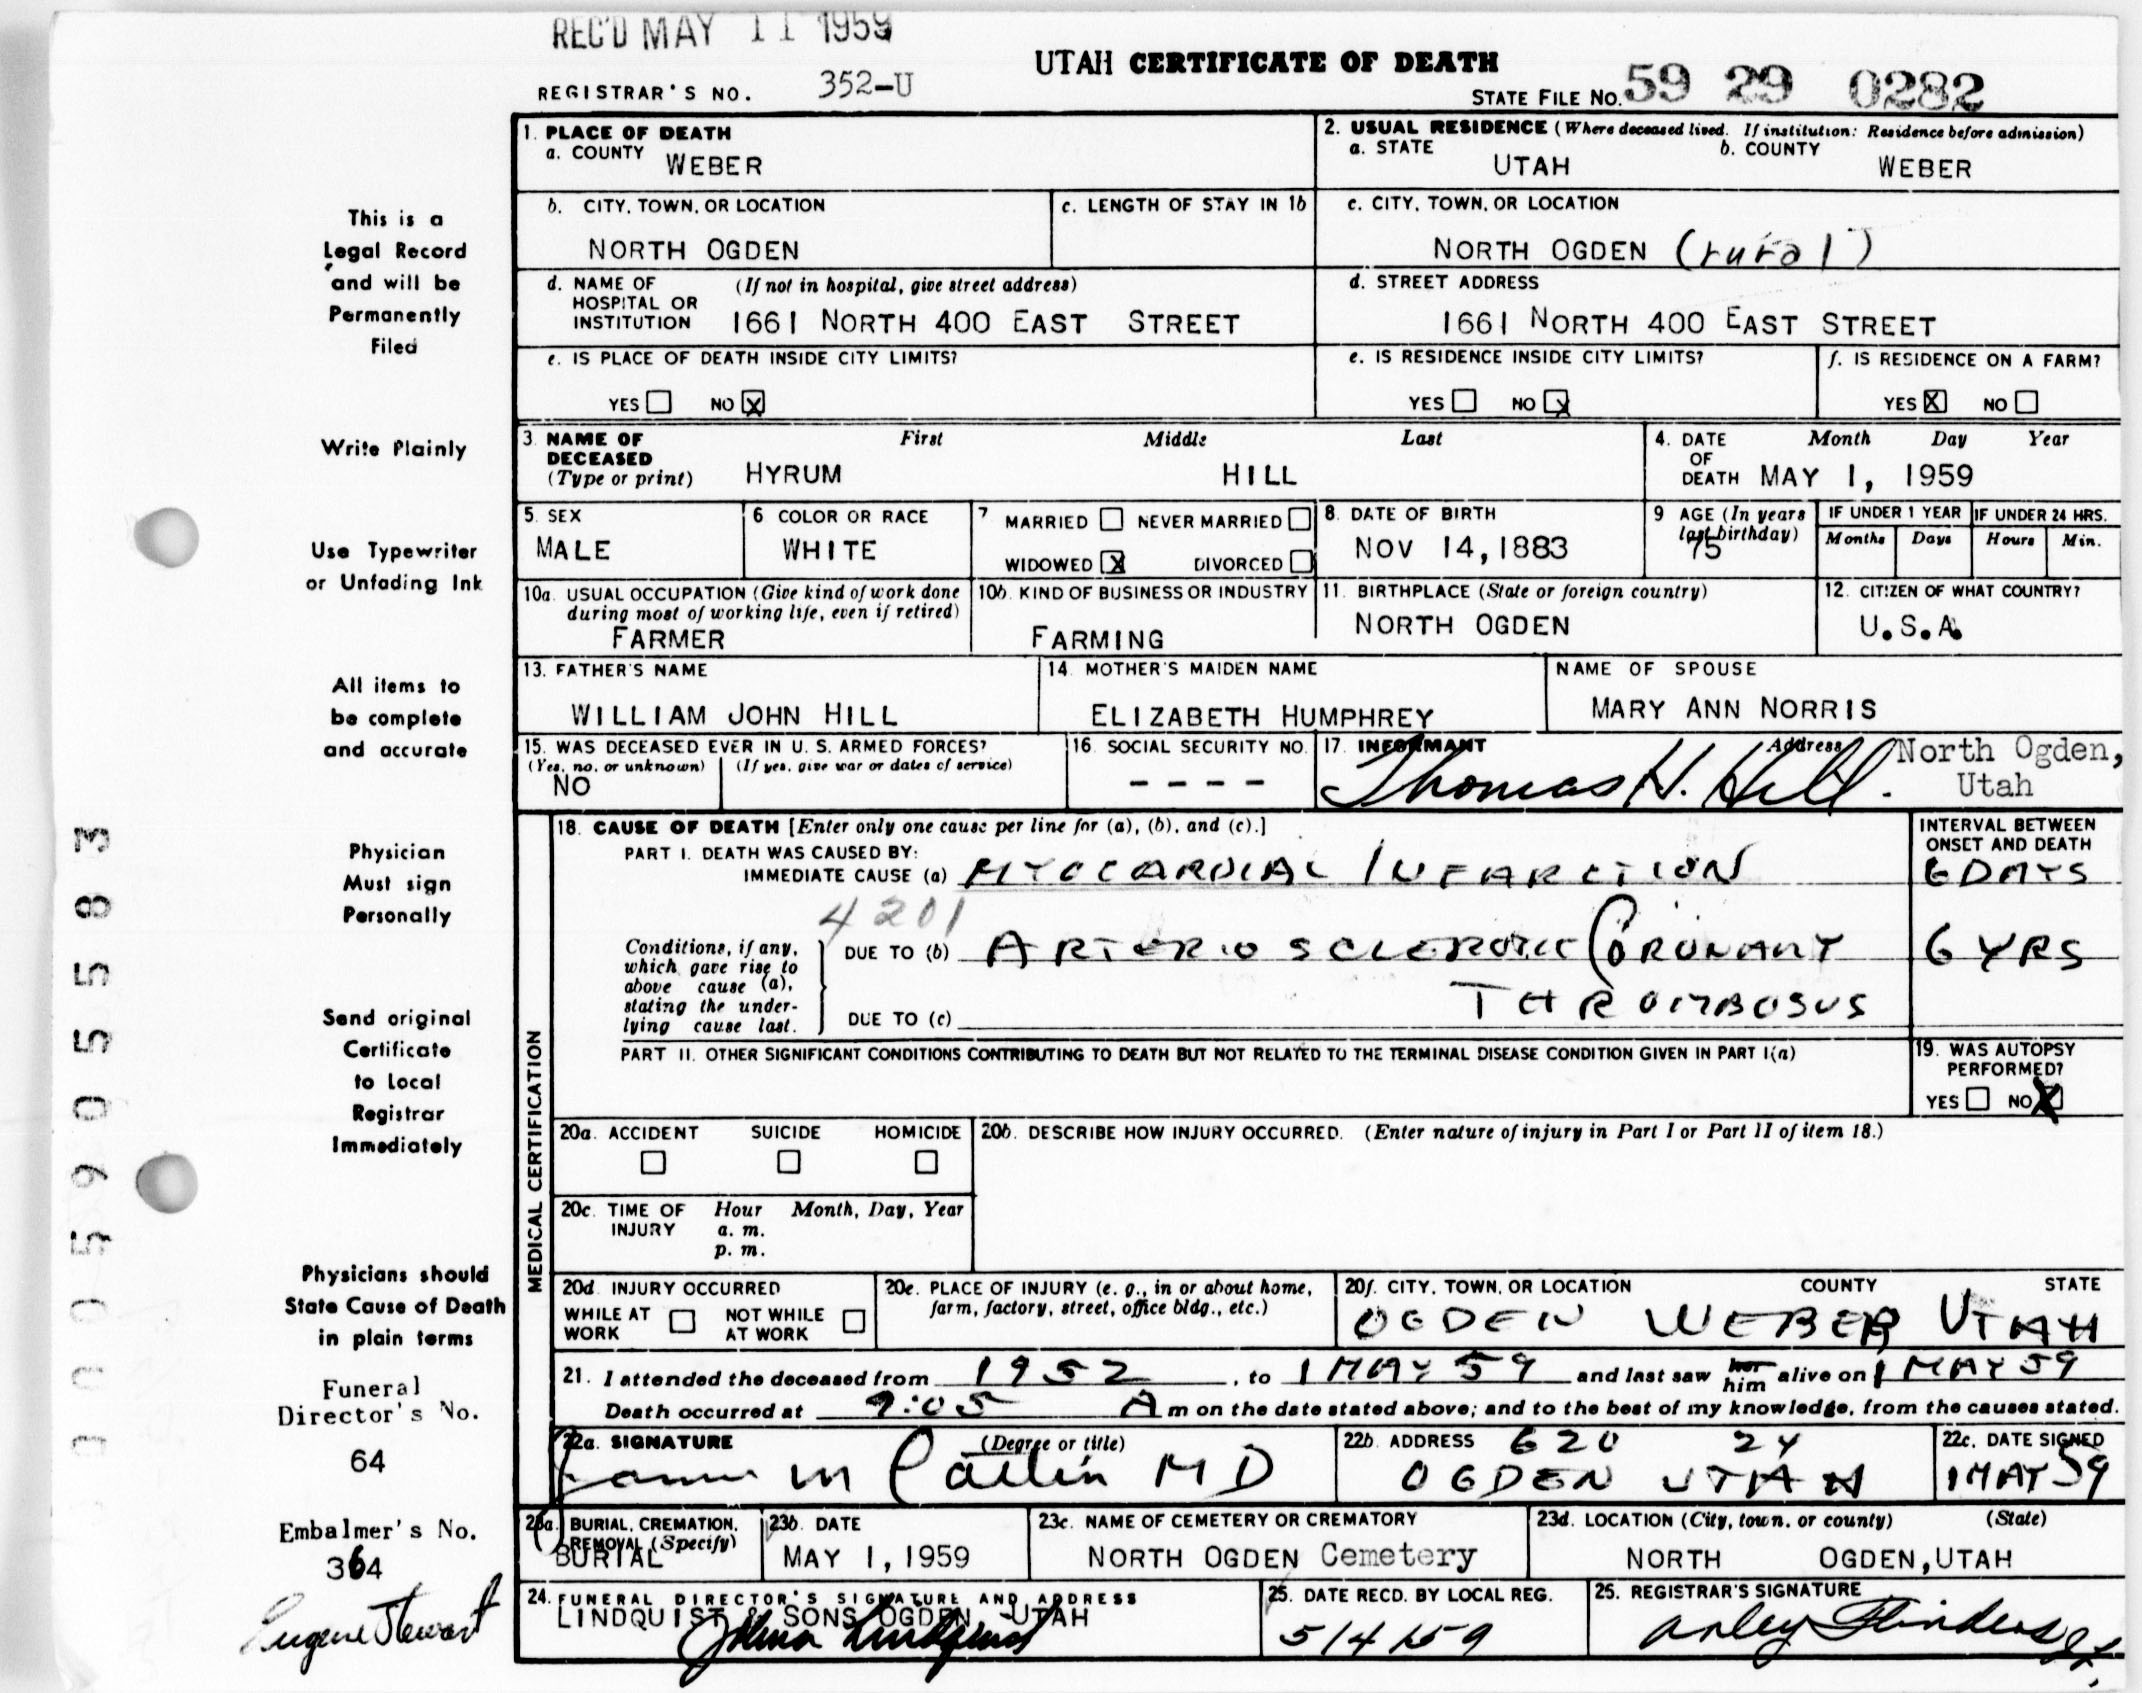 REC'D MAY 11 1959
UTAH CERTIFICATE OF DEATH
REGISTRAR'S NO. 352-U
STATE FILE NO. 59 29 0282
1. PLACE OF DEATH
a. COUNTY WEBER
2. USUAL RESIDENCE (Where deceased lived. If institution: Residence before admission)
a. STATE UTAH b. COUNTY WEBER
b. CITY, TOWN, OR LOCATION NORTH OGDEN
c. LENGTH OF STAY IN 1b
c. CITY, TOWN, OR LOCATION NORTH OGDEN (rural)
d. NAME OF HOSPITAL OR INSTITUTION (If not in hospital, give street address)
1661 NORTH 400 EAST STREET
d. STREET ADDRESS
1661 NORTH 400 EAST STREET
e. IS PLACE OF DEATH INSIDE CITY LIMITS?
YES NO X
e. IS RESIDENCE INSIDE CITY LIMITS?
YES NO X
f. IS RESIDENCE ON A FARM?
YES X NO
3. NAME OF DECEASED (Type or print) First Middle Last
HYRUM HILL
4. DATE OF DEATH Month Day Year
MAY 1, 1959
5. SEX
MALE
6 COLOR OR RACE
WHITE
7 MARRIED NEVER MARRIED
WIDOWED X DIVORCED
8. DATE OF BIRTH
NOV 14, 1883
9 AGE (In years last birthday)
75
IF UNDER 1 YEAR Months Days
IF UNDER 24 HRS. Hours Min.
10a. USUAL OCCUPATION (Give kind of work done during most of working life, even if retired)
FARMER
10b. KIND OF BUSINESS OR INDUSTRY
FARMING
11. BIRTHPLACE (State or foreign country)
NORTH OGDEN
12. CITIZEN OF WHAT COUNTRY?
U.S.A.
13. FATHER'S NAME
WILLIAM JOHN HILL
14. MOTHER'S MAIDEN NAME
ELIZABETH HUMPHREY
NAME OF SPOUSE
MARY ANN NORRIS
15. WAS DECEASED EVER IN U. S. ARMED FORCES?
(Yes, no, or unknown) (If yes, give war or dates of service)
NO
16. SOCIAL SECURITY NO.
- - - -
17. INFORMANT Address
Thomas H. Hill. North Ogden, Utah
MEDICAL CERTIFICATION
18. CAUSE OF DEATH [Enter only one cause per line for (a), (b), and (c).]
INTERVAL BETWEEN ONSET AND DEATH
PART I. DEATH WAS CAUSED BY:
IMMEDIATE CAUSE (a) MYOCARDIAL INFARCTION 6 DAYS
4201
Conditions, if any, which gave rise to above cause (a), stating the underlying cause last.
DUE TO (b) ARTERIOSCLEROTIC CORONARY 6 YRS
THROMBOSUS
DUE TO (c)
PART II. OTHER SIGNIFICANT CONDITIONS CONTRIBUTING TO DEATH BUT NOT RELATED TO THE TERMINAL DISEASE CONDITION GIVEN IN PART I(a)
19. WAS AUTOPSY PERFORMED?
YES NO X
20a. ACCIDENT SUICIDE HOMICIDE
20b. DESCRIBE HOW INJURY OCCURRED. (Enter nature of injury in Part I or Part II of item 18.)
20c. TIME OF INJURY Hour Month, Day, Year
a. m.
p. m.
20d. INJURY OCCURRED
WHILE AT WORK NOT WHILE AT WORK
20e. PLACE OF INJURY (e. g., in or about home, farm, factory, street, office bldg., etc.)
20f. CITY, TOWN, OR LOCATION COUNTY STATE
OGDEN WEBER UTAH
21. I attended the deceased from 1952, to 1 MAY 59 and last saw her him alive on 1 MAY 59
Death occurred at 9:05 A m on the date stated above; and to the best of my knowledge, from the causes stated.
22a. SIGNATURE (Degree or title)
m Catlin MD
22b. ADDRESS 620 24
OGDEN UTAH
22c. DATE SIGNED
1 MAY 59
23a. BURIAL, CREMATION, REMOVAL (Specify)
BURIAL
23b. DATE
MAY 1, 1959
23c. NAME OF CEMETERY OR CREMATORY
NORTH OGDEN Cemetery
23d. LOCATION (City, town, or county) (State)
NORTH OGDEN, UTAH
24. FUNERAL DIRECTOR'S SIGNATURE AND ADDRESS
LINDQUIST & SONS OGDEN, UTAH
Lindquist
25. DATE RECD. BY LOCAL REG.
5/4/59
25. REGISTRAR'S SIGNATURE
Arley Flinders
This is a
Legal Record
and will be
Permanently
Filed
Write Plainly
Use Typewriter
or Unfading Ink
All items to
be complete
and accurate
Physician
Must sign
Personally
Send original
Certificate
to Local
Registrar
Immediately
Physicians should
State Cause of Death
in plain terms
Funeral
Director's No.
64
Embalmer's No.
364
Eugene Stewart
0005905583